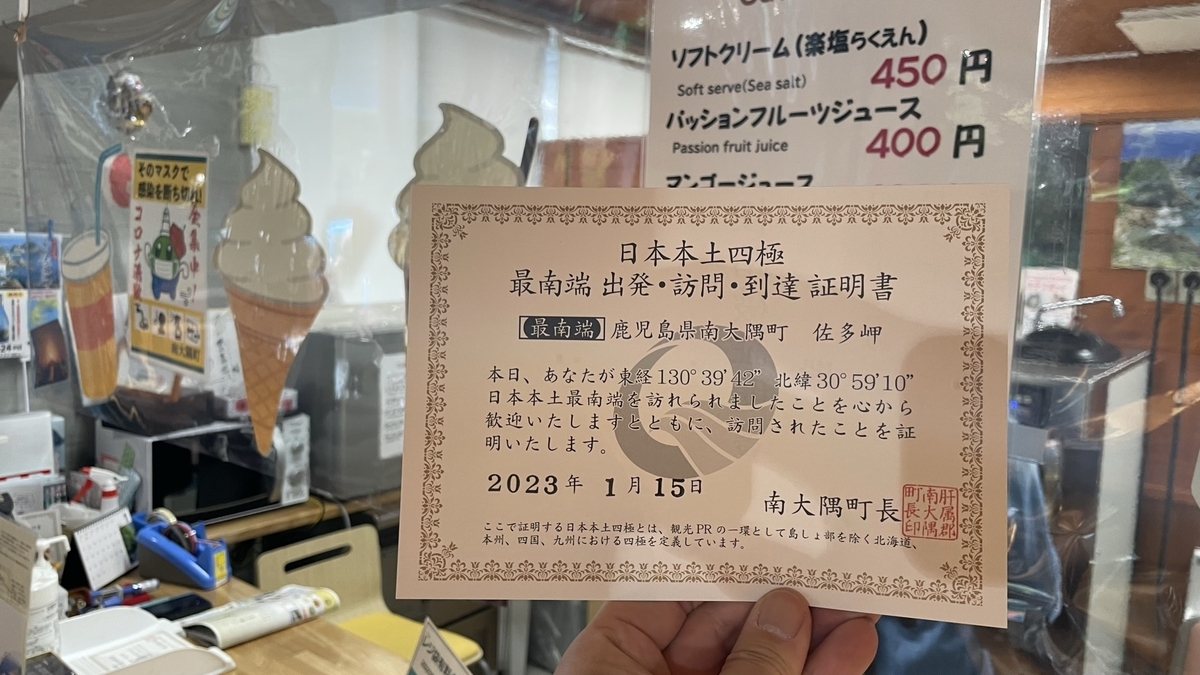 ソフトクリーム(楽塩らくえん)
450円
Soft serve(Sea salt)
パッションフルーツジュース
400円
Passion fruit juice
マンゴージュース
そのマスクで
感染を断ち切れ!
日本本土四極
最南端 出発・訪問・到達 証明書
【最南端】鹿児島県南大隅町 佐多岬
本日、あなたが東経130°39'42” 北緯30°59'10”
日本本土最南端を訪れられましたことを心から
歓迎いたしますとともに、訪問されたことを証
明いたします。
2023年 1月15日
南大隅町長
肝属郡
南大隅
町長印
ここで証明する日本本土四極とは、観光PRの一環として島しょ部を除く北海道、
本州、四国、九州における四極を定義しています。